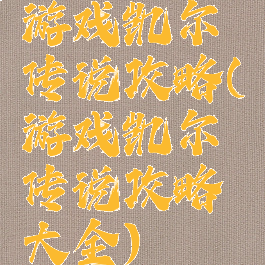 游戏凯尔
传说攻略(
游戏凯尔
传说攻略
大全)